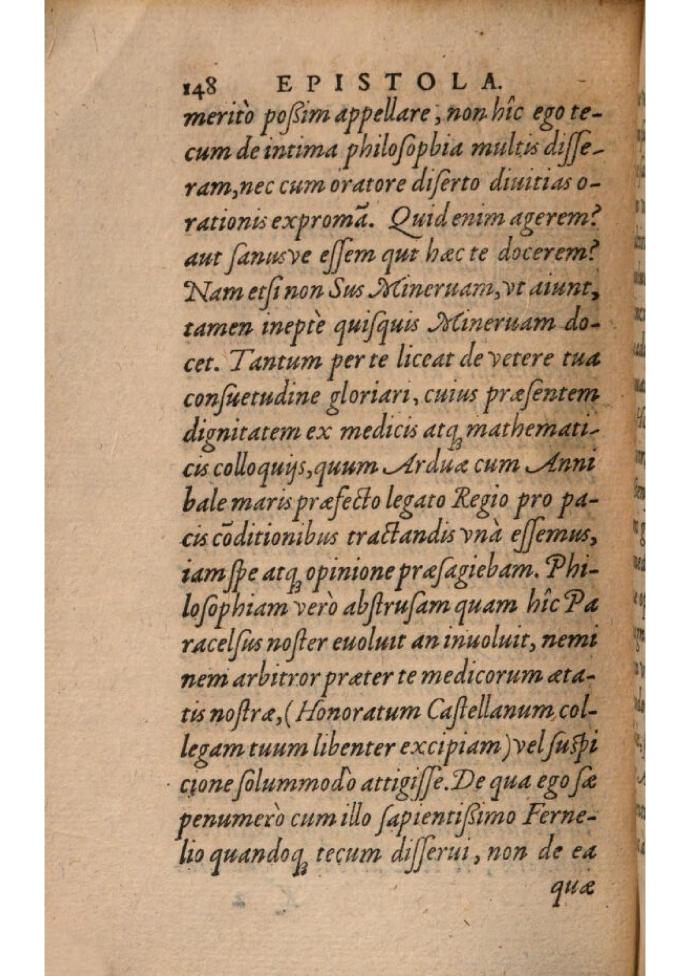 148 EPISTOLA.
meritò poßim appellare, non hîc ego te-
cum de intima philosophia multis disse-
ram, nec cum oratore diserto diuitias o-
rationis expromā. Quid enim agerem?
aut sanusve essem qui hæc te docerem?
Nam etsi non Sus Mineruam, vt aiunt,
tamen ineptè quisquis Mineruam do-
cet. Tantum per te liceat de vetere tua
consuetudine gloriari, cuius præsentem
dignitatem ex medicis atq; mathemati-
cis colloquijs, quum Arduæ cum Anni
bale maris præfecto legato Regio pro pa-
cis cōditionibus tractandis vnà essemus,
iam spe atq; opinione præsagiebam. Phi-
losophiam verò abstrusam quam hîc Pa
racelsus noster euoluit an inuoluit, nemi
nem arbitror præter te medicorum æta-
tis nostræ, (Honoratum Castellanum col-
legam tuum libenter excipiam) vel suspi
cione solummodò attigisse. De qua ego sæ
penumerò cum illo sapientißimo Ferne-
lio quandoq; tecum disserui, non de ea
quæ